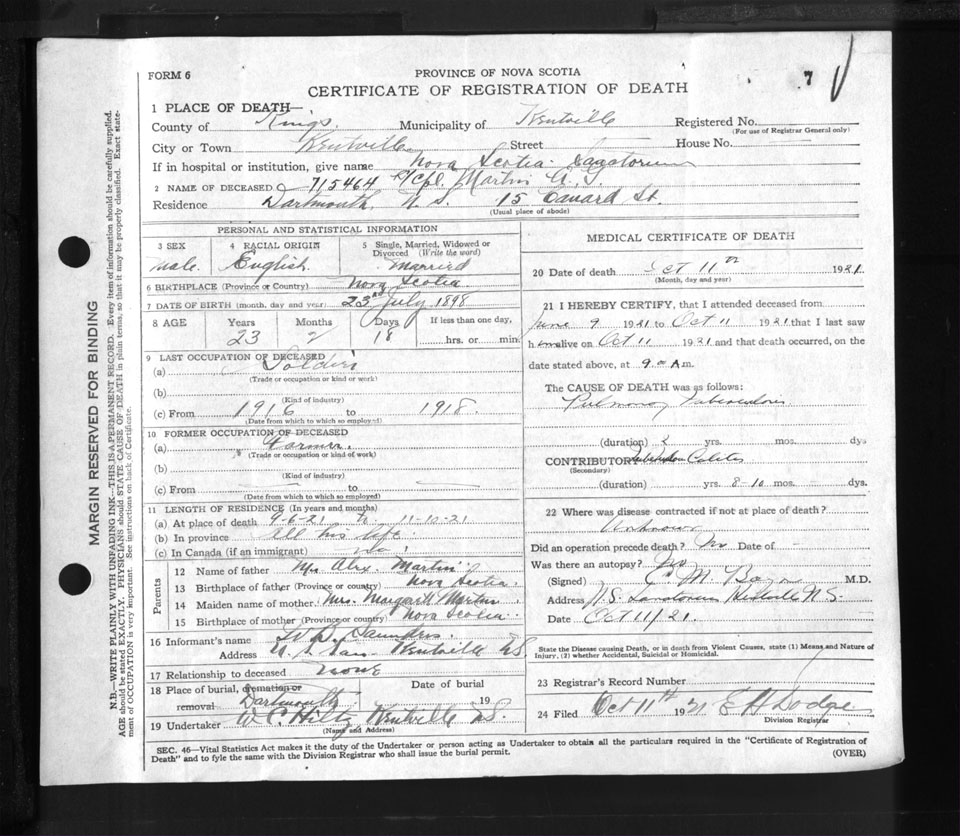 FORM 6
PROVINCE OF NOVA SCOTIA
7
CERTIFICATE OF REGISTRATION OF DEATH
1 PLACE OF DEATH—
County of Kings. Municipality of Kentville Registered No.
(For use of Registrar General only)
City or Town Kentville Street House No.
If in hospital or institution, give name Nova Scotia Sanatorium
2 NAME OF DECEASED 715464 Cpl. Martin A. J.
Residence Dartmouth, N. S. 15 Canard St.
(Usual place of abode)
PERSONAL AND STATISTICAL INFORMATION
3 SEX
male.
4 RACIAL ORIGIN
English.
5 Single, Married, Widowed or Divorced (Write the word)
Married
6 BIRTHPLACE (Province or Country) Nova Scotia
7 DATE OF BIRTH (month, day and year) 23rd July 1898
8 AGE Years Months Days If less than one day,
23 2 18 hrs. or min.
9 LAST OCCUPATION OF DECEASED
(a) Soldier
(Trade or occupation or kind or work)
(b)
(Kind of industry)
(c) From 1916 to 1918.
(Date from which to which so employed)
10 FORMER OCCUPATION OF DECEASED
(a) Farmer.
(Trade or occupation or kind of work)
(b)
(Kind of industry)
(c) From — to —
(Date from which to which so employed)
11 LENGTH OF RESIDENCE (In years and months)
(a) At place of death 9-6-21 to 11-10-21
(b) In province all his life.
(c) In Canada (if an immigrant) no
Parents
12 Name of father Mr. Alex. Martin
13 Birthplace of father (Province or country) Nova Scotia.
14 Maiden name of mother Mrs. Margaret Martin
15 Birthplace of mother (Province or country) Nova Scotia
16 Informant's name Saunders.
Address N. S. San. Kentville NS
17 Relationship to deceased none
18 Place of burial, cremation or removal Dartmouth Date of burial 19
19 Undertaker W C Hiltz, Kentville NS.
(Name and Address)
MEDICAL CERTIFICATE OF DEATH
20 Date of death Oct 11th 1921.
(Month, day and year)
21 I HEREBY CERTIFY, that I attended deceased from
June 9 1921 to Oct 11 1921 that I last saw
him alive on Oct 11 1921 and that death occurred, on the
date stated above, at 9.00 A m.
The CAUSE OF DEATH was as follows:
Pulmonary Tuberculosis
(duration) 2 yrs. mos. dys
CONTRIBUTORY Tuberculous Colitis
(Secondary)
(duration) yrs. 8-10 mos. dys.
22 Where was disease contracted if not at place of death?
Unknown
Did an operation precede death? No Date of —
Was there an autopsy? No
(Signed) M. M.D.
Address N. S. Sanatorium Kentville N.S.
Date Oct 11/21.
State the Disease causing Death, or in death from Violent Causes, state (1) Means and Nature of Injury, (2) whether Accidental, Suicidal or Homicidal.
23 Registrar's Record Number
24 Filed Oct 11th 1921 E H Dodge
Division Registrar
SEC. 46—Vital Statistics Act makes it the duty of the Undertaker or person acting as Undertaker to obtain all the particulars required in the "Certificate of Registration of
Death" and to fyle the same with the Division Registrar who shall issue the burial permit.
(OVER)
MARGIN RESERVED FOR BINDING
N.B.—WRITE PLAINLY WITH UNFADING INK—THIS IS A PERMANENT RECORD. Every item of information should be carefully supplied.
AGE should be stated EXACTLY. PHYSICIANS should STATE CAUSE OF DEATH in plain terms, so that it may be properly classified. Exact state-
ment of OCCUPATION is very important. See instructions on back of Certificate.